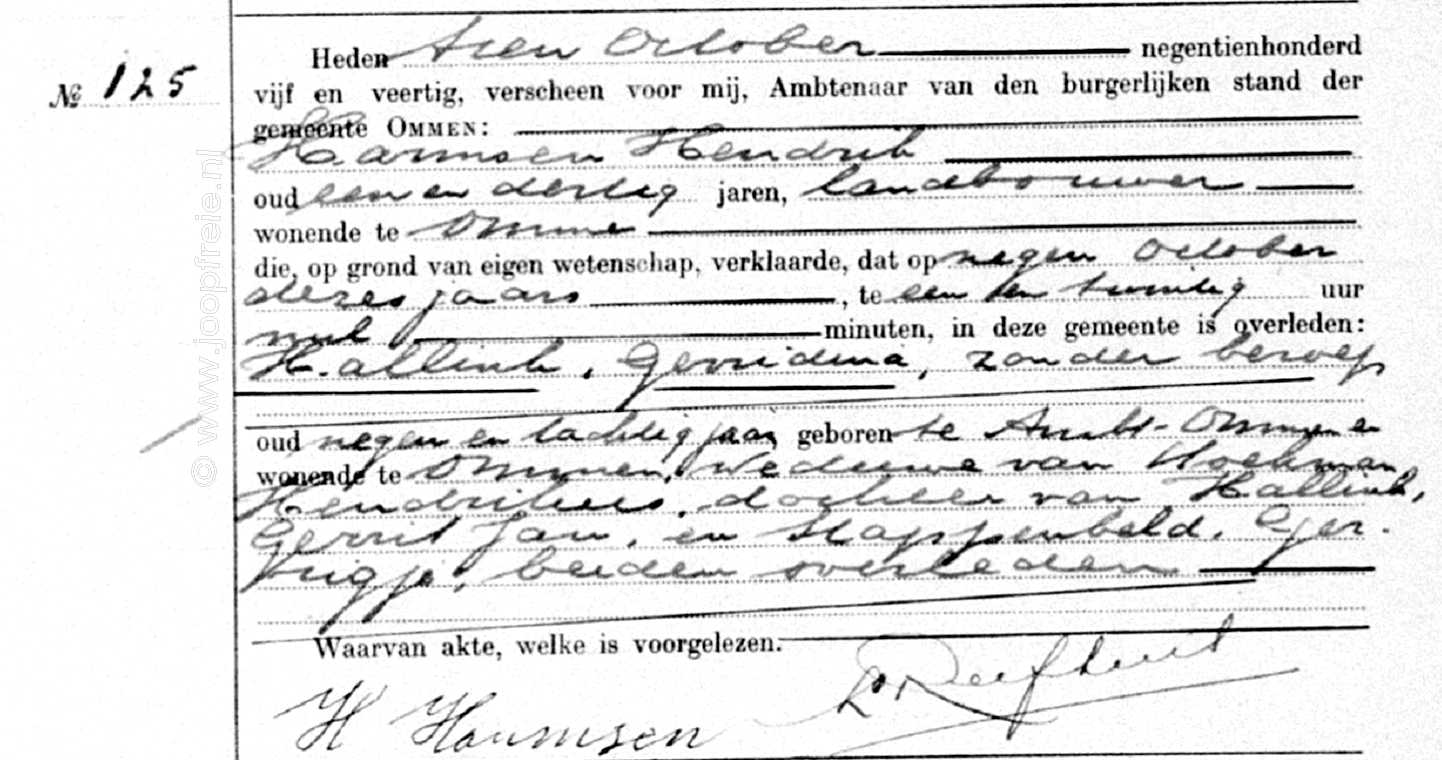 Heden tien October negentienhonderd
№ 125
vijf en veertig, verscheen voor mij, Ambtenaar van den burgerlijken stand der
gemeente OMMEN:
Harmsen Hendrik
oud een en dertig jaren, landbouwer
wonende te Ommen
die, op grond van eigen wetenschap, verklaarde, dat op negen October
dezes jaars, te een en twintig uur
nul minuten, in deze gemeente is overleden:
Hallink, Gerridina, zonder beroep
oud negen en tachtig jaar, geboren te Ambt-Ommen en
wonende te Ommen, weduwe van Hoekman,
Hendrikus, dochter van Hallink,
Gerrit Jan, en Stappenbeld, Ger-
trigje, beiden overleden
Waarvan akte, welke is voorgelezen.
H Harmsen
© www.joopfreie.nl